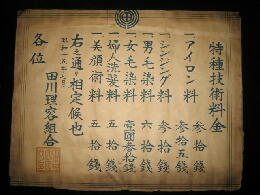 特種技術料金
一アイロン料 参拾銭
参拾五銭
一シンジング料 参拾銭
一男毛染料 六拾銭
一女毛染料 壹圓参拾銭
一婦人洗髪料 五拾銭
一美顔術料 五拾銭
右之通り相定候也
昭和十五年六月
田川理容組合
各位